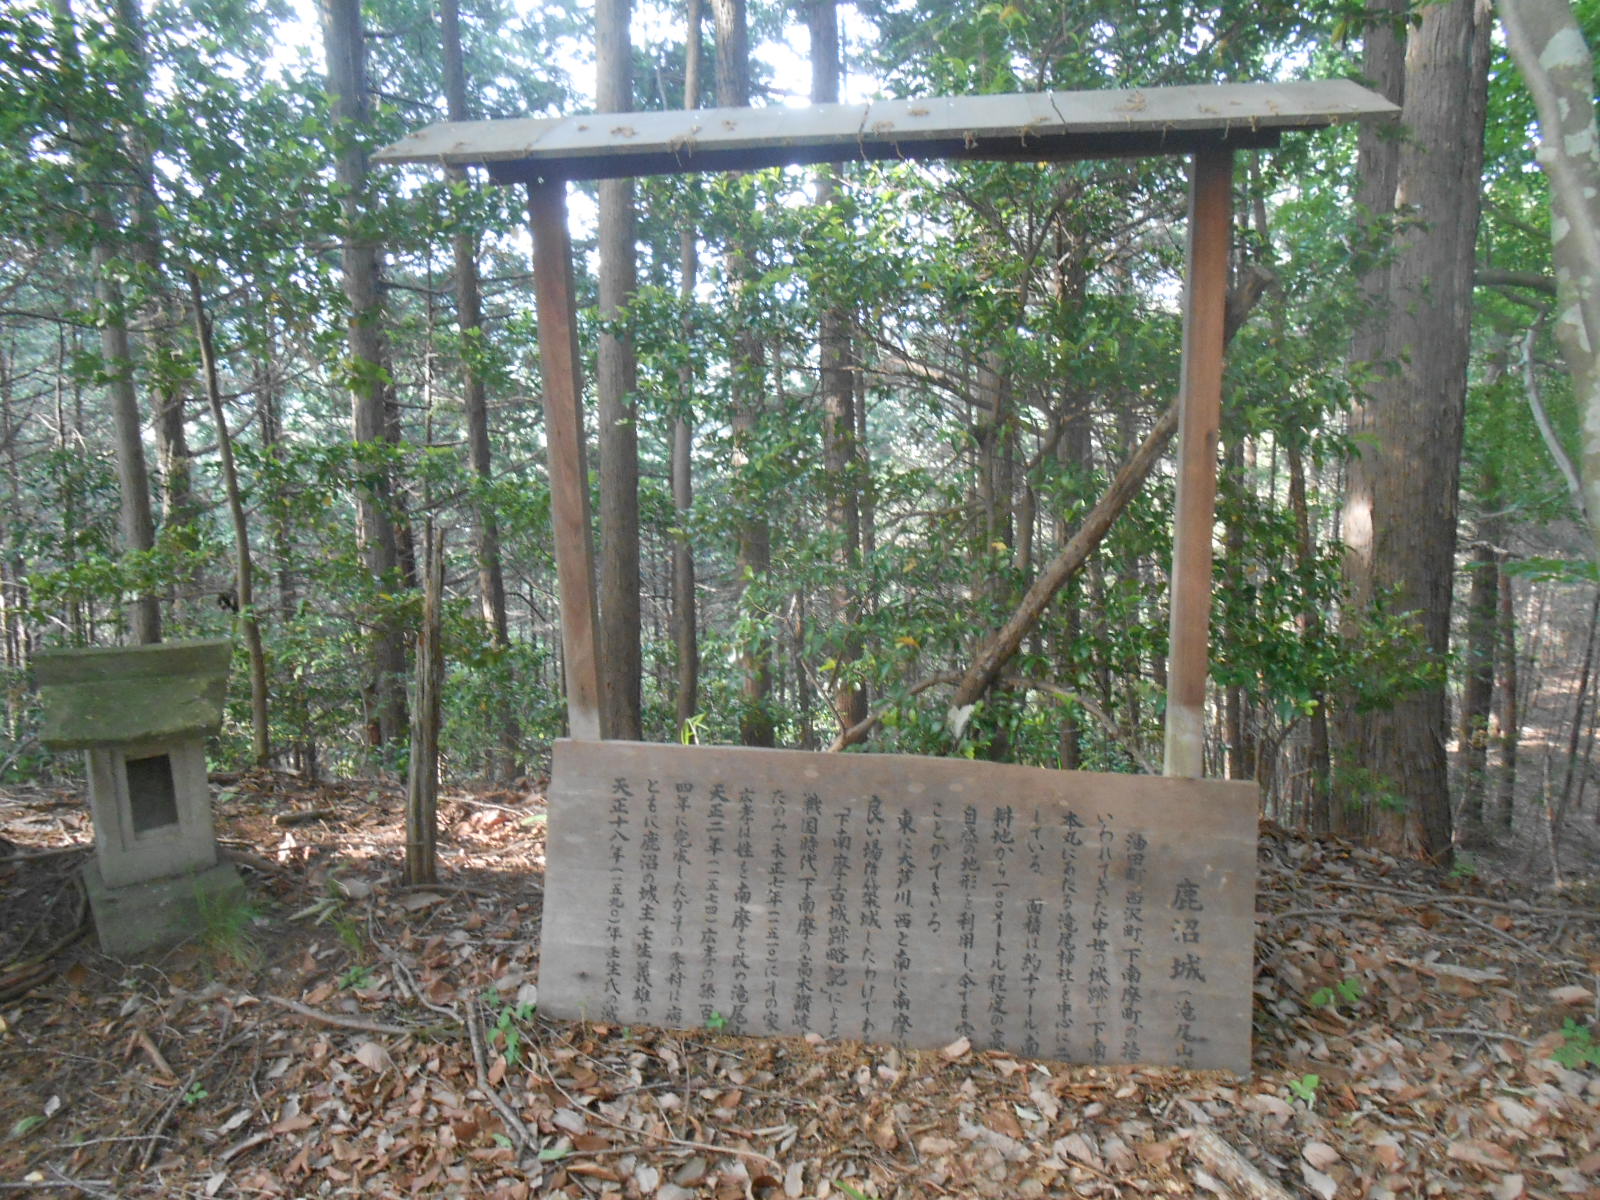 鹿沼城(滝尾山
油田町、西沢町、下南摩町の
いわれてきた中世の城跡で下南
本丸にあたる滝尾神社を中心に二
している。面積は約
耕地から一〇〇メートル程度の高
自然の地形を利用し、今でも
ことができる。
東に大芦川、西と南に南摩
良い場所に築城したわけであ
「下南摩古城跡略記」によ
戦国時代、下南摩の高木讃岐
たのみ、永正七年(一五一〇)にその家
広孝は姓を南摩と改め滝尾
天正二年(一五七四)広孝の孫
四年に完成したがその秀村は病
ともに鹿沼の城主壬生義雄の
天正十八年(一五九〇)年壬生氏の滅